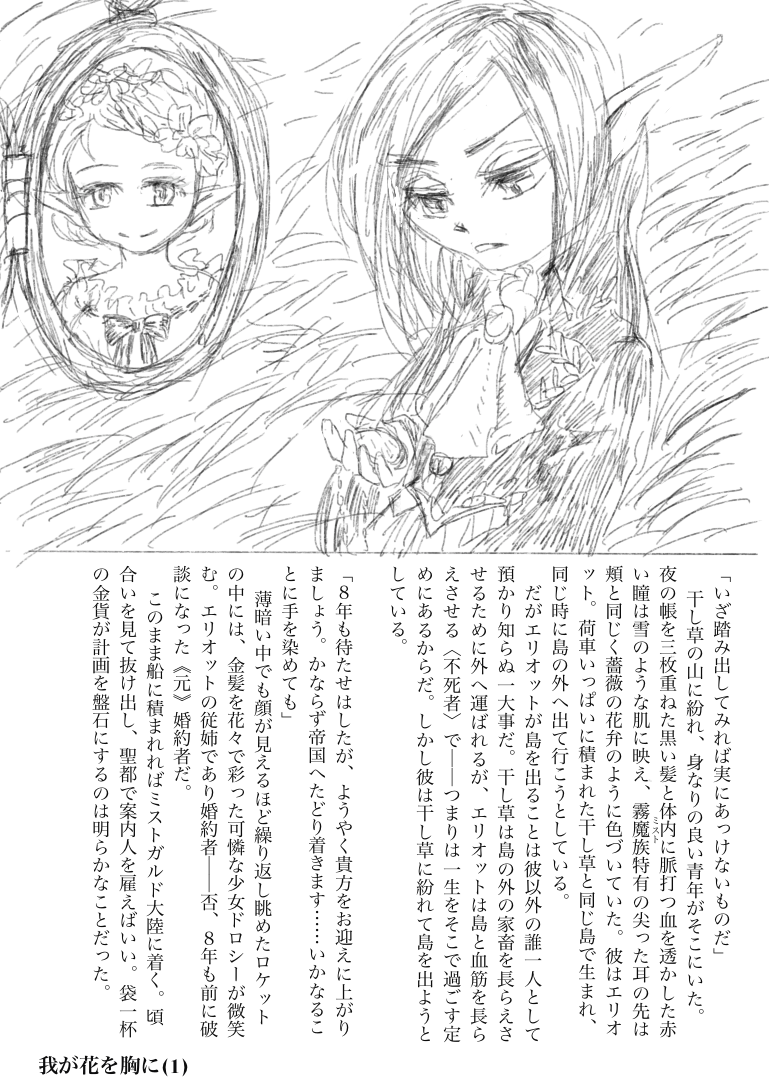 「いざ踏み出してみれば実にあっけないものだ」
　干し草の山に紛れ、身なりの良い青年がそこにいた。
夜の帳を三枚重ねた黒い髪と体内に脈打つ血を透かした赤
い瞳は雪のような肌に映え、霧魔族特有の尖った耳の先は
ミスト
頬と同じく薔薇の花弁のように色づいていた。彼はエリオ
ット。荷車いっぱいに積まれた干し草と同じ島で生まれ、
同じ時に島の外へ出て行こうとしている。
　だがエリオットが島を出ることは彼以外の誰一人として
預かり知らぬ一大事だ。干し草は島の外の家畜を長らえさ
せるために外へ運ばれるが、エリオットは島と血筋を長ら
えさせる〈不死者〉で――つまりは一生をそこで過ごす定
めにあるからだ。しかし彼は干し草に紛れて島を出ようと
している。
「８年も待たせはしたが、ようやく貴方をお迎えに上がり
ましょう。かならず帝国へたどり着きます……いかなるこ
とに手を染めても」
　薄暗い中でも顔が見えるほど繰り返し眺めたロケット
の中には、金髪を花々で彩った可憐な少女ドロシーが微笑
む。エリオットの従姉であり婚約者――否、８年も前に破
談になった《元》婚約者だ。
　このまま船に積まれればミストガルド大陸に着く。頃
合いを見て抜け出し、聖都で案内人を雇えばいい。袋一杯
の金貨が計画を盤石にするのは明らかなことだった。
我が花を胸に(1)